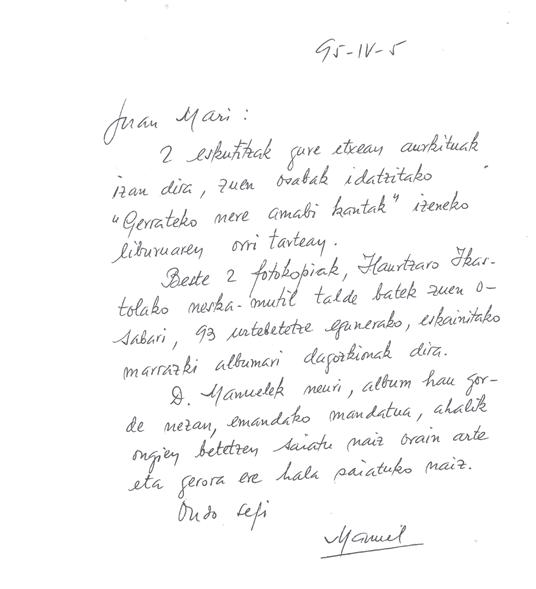 95-IV-5
Juan Mari:
2 eskutitzak gure etxean aurkituak
izan dira, zuen osabak idatzitako
"Gerrateko nere amabi kantak" izeneko
liburuaren orri tartean.
Beste 2 fotokopiak, Haurtzaro Ikas-
tolako neska-mutil talde batek zuen o-
sabari, 93 urtebetetze egunerako, eskainitako
marrazki albumari dagozkionak dira.
D. Manuelek neuri, album hau gor-
de nezan, emandako mandatua, ahalik
ongien betetzen saiatu naiz orain arte
eta gerora ere hala saiatuko naiz.
Ondo segi
Manuel